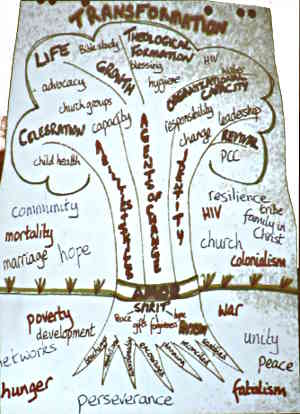 TRANSFORMATION
LIFE
Bible study
THEOLOGICAL FORMATION
HIV
blessing
GROWTH
hygiene
advocacy
ORGANIZATIONAL CAPACITY
church groups
responsibility
leadership
capacity
CELEBRATION
change
REVIVAL
child health
PCC
ALL LEVELS
AGENTS OF CHANGE
IDENTITY
community
resilience
HIV
tribe
family in Christ
mortality
marriage
hope
church
colonialism
SPIRIT
poverty
development
Peace
hope
gifts
forgiveness
war
unity
networks
Peace
hunger
fatalism
perseverance